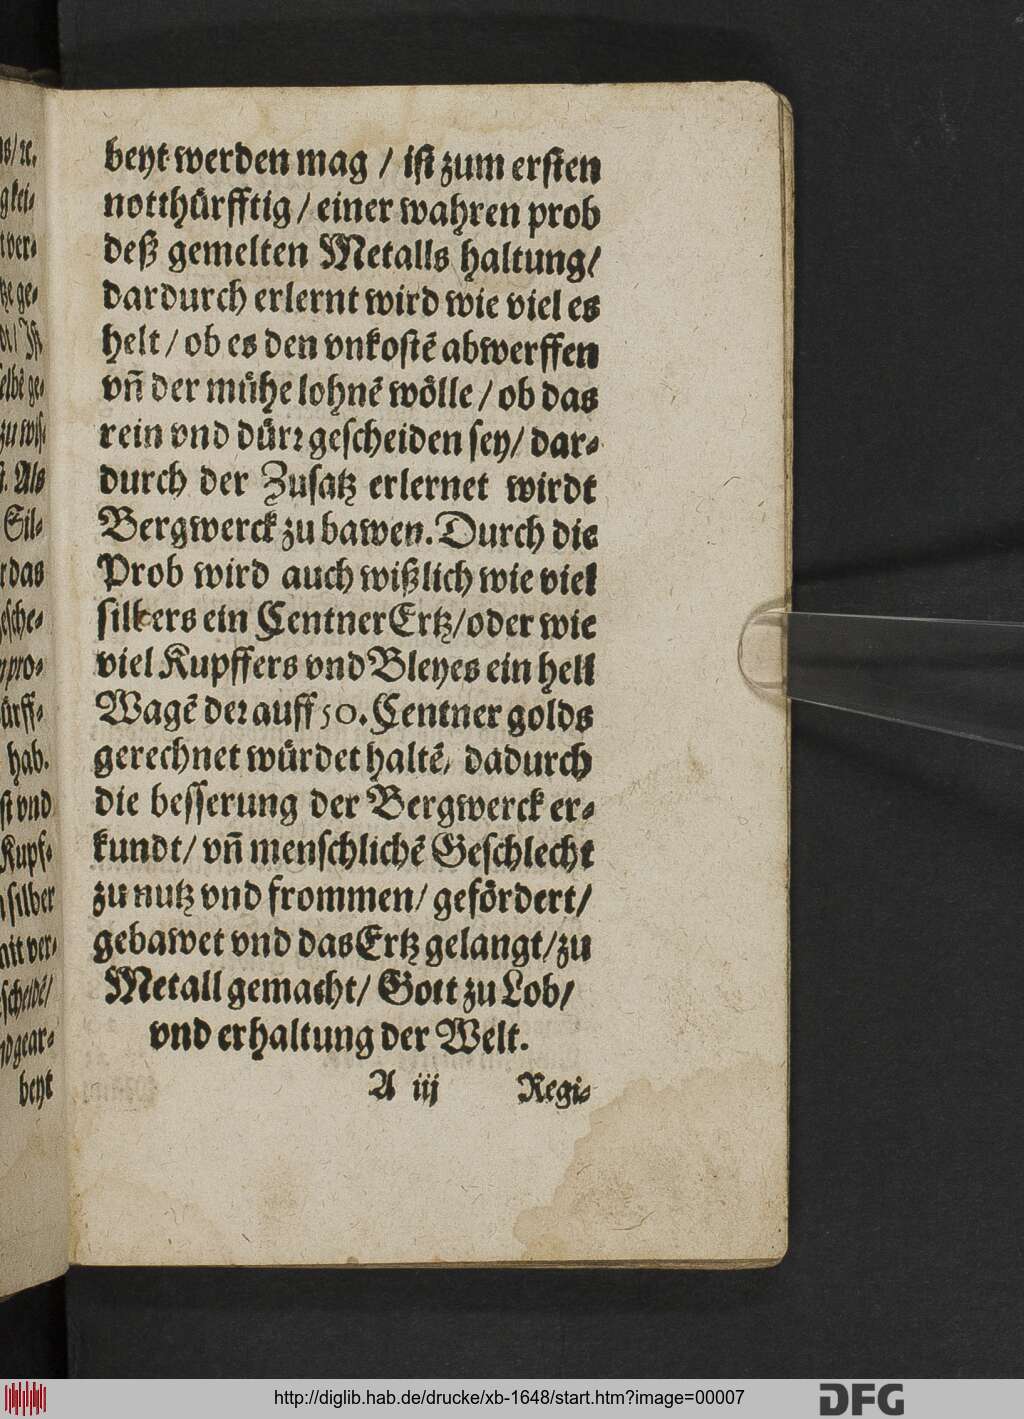 beyt werden mag / ist zum ersten
notthürfftig / einer wahren prob
deß gemelten Metalls haltung/
dardurch erlernt wird wie viel es
helt / ob es den vnkostẽ abwerffen
vñ der mühe lohnẽ wölle / ob das
rein vnd dürꝛ gescheiden sey/ dar⸗
durch der Zusatz erlernet wirdt
Bergwerck zu bawen. Durch die
Prob wird auch wißlich wie viel
silbers ein Centner Ertz/oder wie
viel Kupffers vnd Bleyes ein hell
Wagẽ deꝛ auff 50. Centner golds
gerechnet würdet haltẽ, dadurch
die besserung der Bergwerck er⸗
kundt/ vñ menschlichẽ Geschlecht
zu nutz vnd frommen/ gefördert/
gebawet vnd das Ertz gelangt/zu
Metall gemacht/ Gott zu Lob/
vnd erhaltung der Welt.
A iij Regi⸗
http://diglib.hab.de/drucke/xb-1648/start.htm?image=00007
DFG